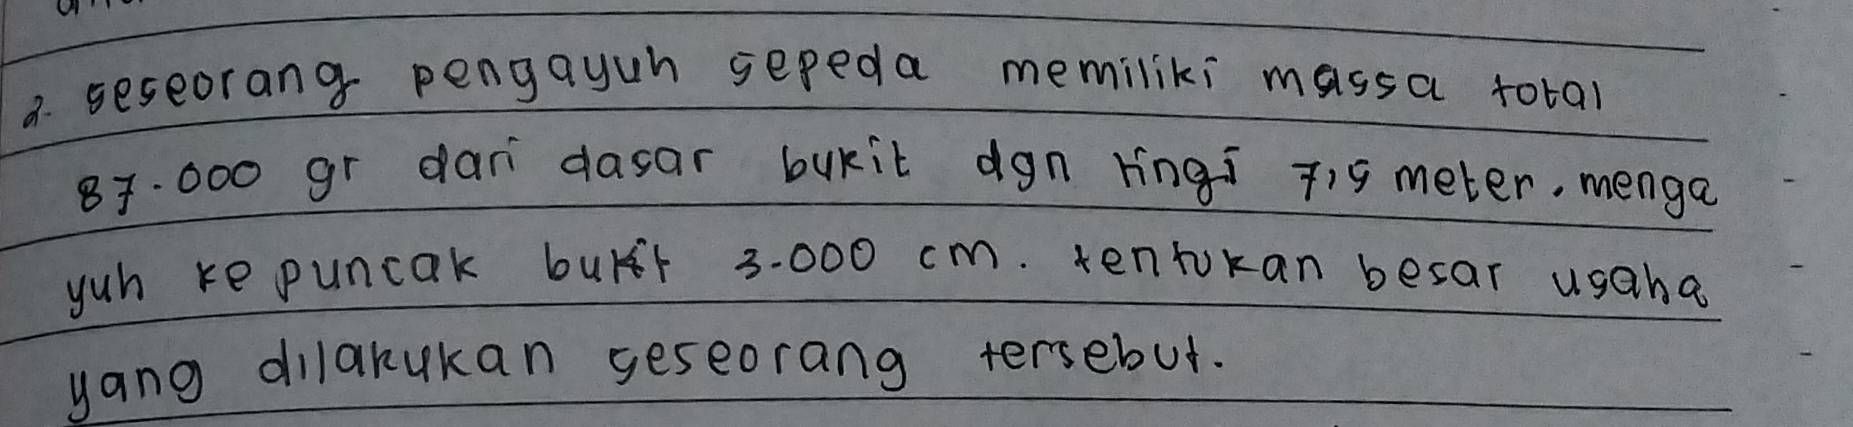 2. seseorang pengayuh sepeda memiliki massa total
87.000 gr dari dasar bukit dgn tingi 7,5 meter. menga
yuh ke puncak bukit 3.000 cm. tentukan besar usaha
yang dilakukan seseorang tersebut.